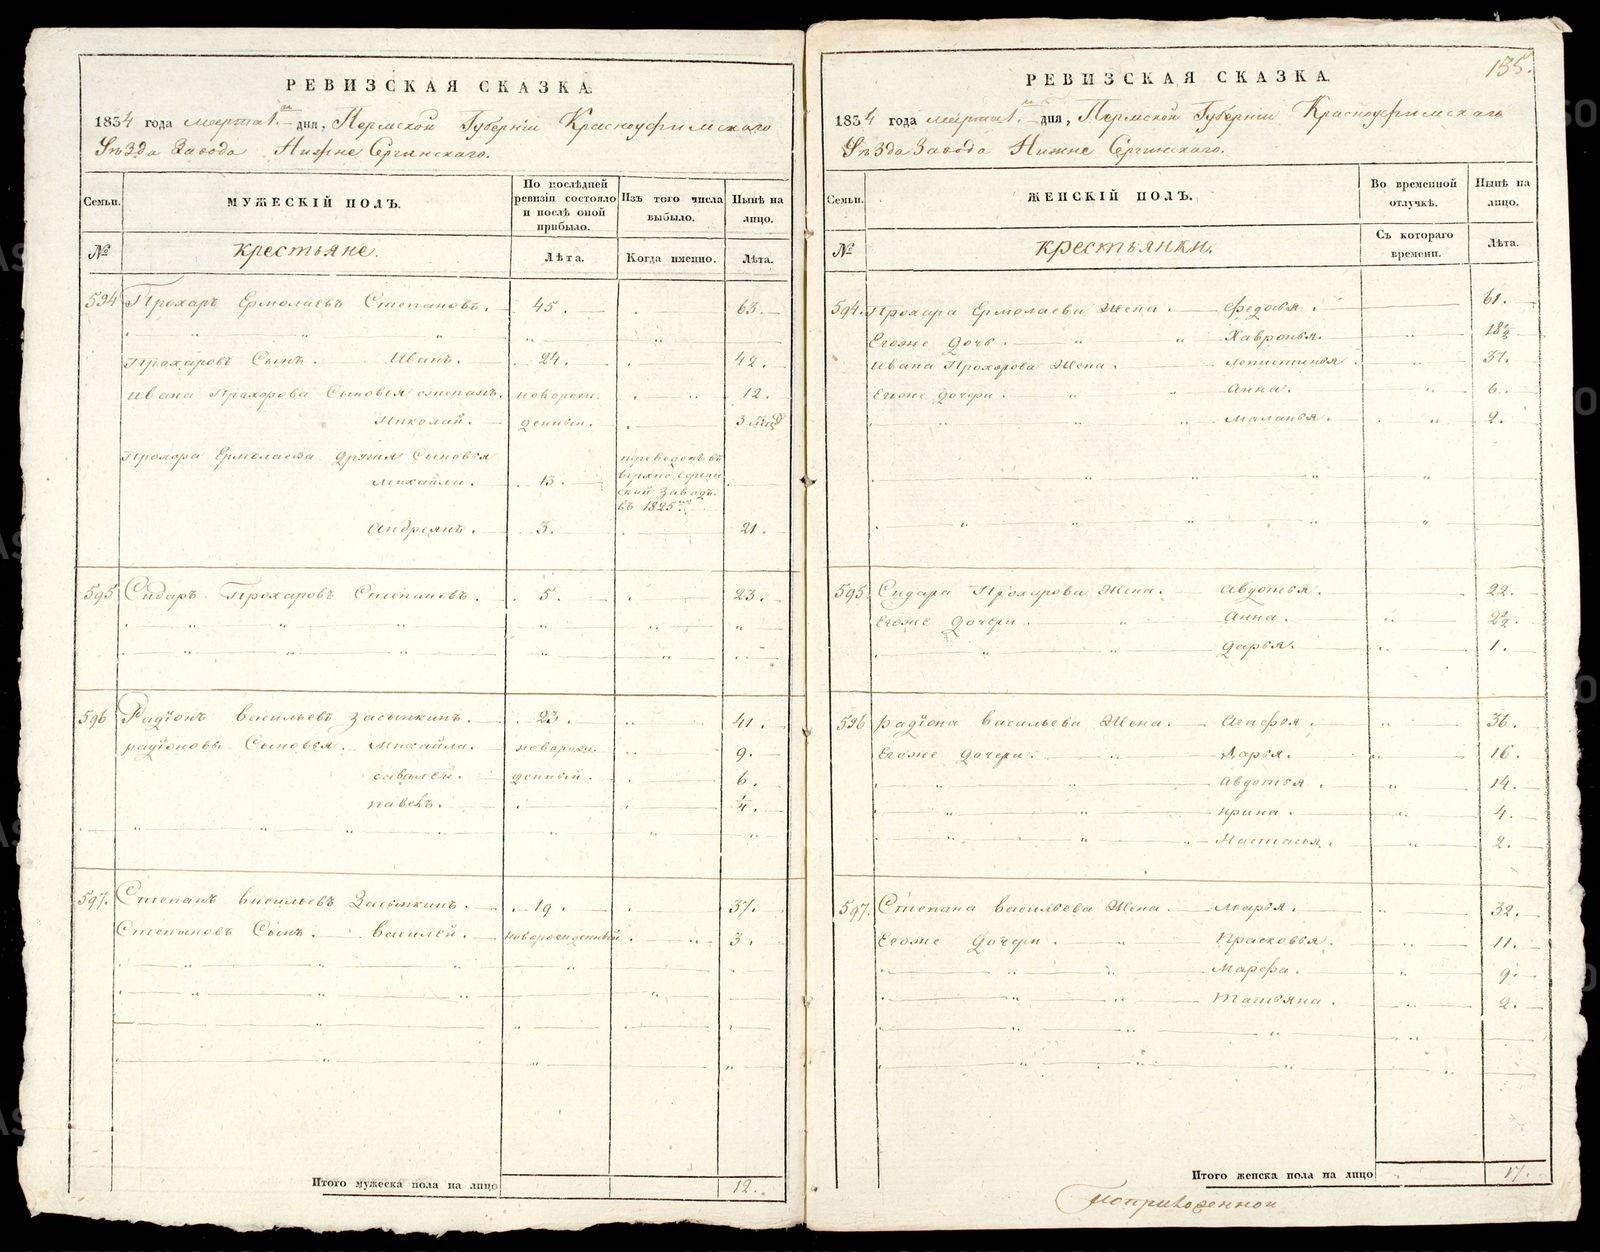 РЕВИЗСКАЯ СКАЗКА.
1834 года марта 1. дня, Пермской Губернiи Красноуфимскаго
Уѣзда Завода Нижне Сергинскаго.
Семьи.
МУЖЕСКIЙ ПОЛЪ.
По послѣдней ревизiи состояло и послѣ оной прибыло.
Изъ того числа выбыло.
Нынѣ на лицо.
№ Крестьяне. Лѣта. Когда именно. Лѣта.
594 Прохаръ Ермолаевъ Степановъ. 45. 63.
Прохаровъ Сынъ. Иванъ. 24. 42.
Ивана Прохорова Сыновья степанъ. новорож. 12.
Николай. денныи. 3
Прохора Ермолаева другия Сыновья
михайла. 13. переведенъ въ верхно сергинской заводъ. въ 1825
Андреянъ. 3. 21.
595 Сидаръ Прохаровъ Степановъ. 5. 23.
596 Радiонъ васильевъ Засыпкинъ. 23. 41.
радiоновы Сыновья. михайла. новорож. 9.
савалей. денныи. 6.
павелъ. 1/4.
597. Степанъ васильевъ Засыпкинъ. 19. 37.
Степановъ Сынъ. василей. новорожденныи 3.
Итого мужеска пола на лицо 12.
135.
РЕВИЗСКАЯ СКАЗКА.
1834 года марта 1. дня, Пермской Губернiи Красноуфимскаго
Уѣзда Завода Нижне Сергинскаго.
Семьи.
ЖЕНСКIЙ ПОЛЪ.
Во временной отлучкѣ.
Нынѣ на лицо.
№ Крестьянки. Съ котораго времени. Лѣта.
594. Прохара Ермолаева Жена. Федосья. 61.
Егоже дочь. Хавронья. 18 1/2
Ивана Прохорова Жена. 37.
Егоже дочери. Анна. 6.
маланья. 2.
595 Сидара Прохарова Жена. авдотья. 22.
Егоже дочери. анна. 2 1/2.
дарья. 1.
596 радiона васильева Жена. агафья. 36.
Егоже дочери. Дарья. 16.
авдотья. 14.
ирина. 4.
Настасья. 2.
597. Степана васильева Жена. марья. 32.
Егоже дочери. Прасковья. 11.
марфа. 9.
татьяна. 2.
Итого женска пола на лицо 17.